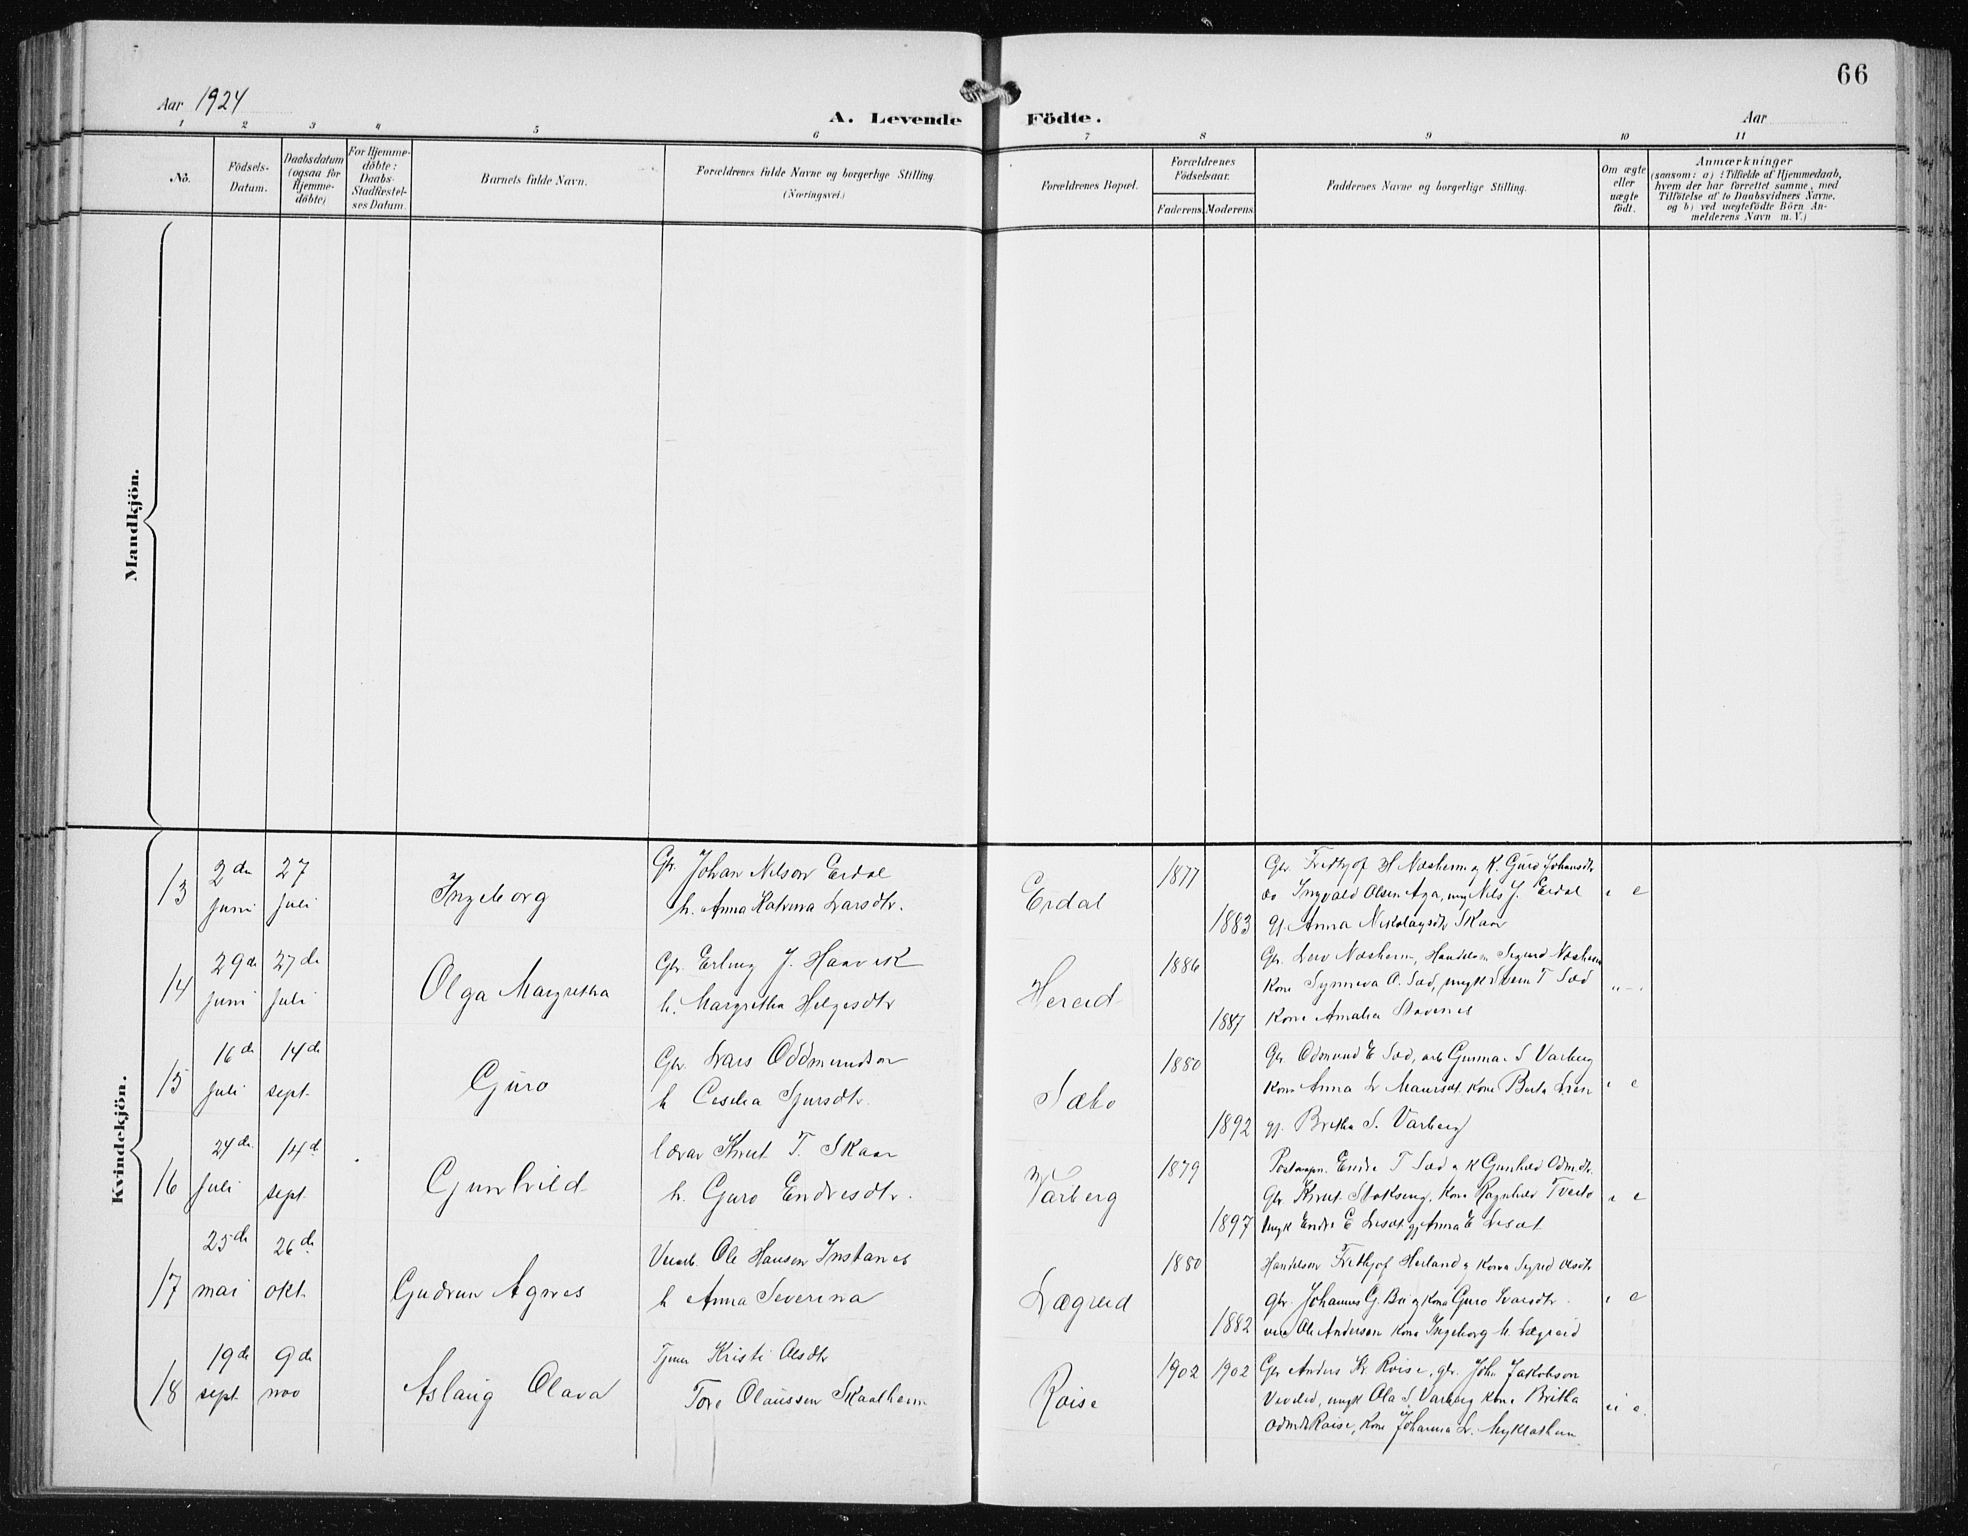 66
Aar 1924
A. Levende Födte.
Aar
1 2 3 4 5 6 7 8 9 10 11
No.
Födsels-Datum.
Daabsdatum (ogsaa for Hjemme-döbte)
For Hjemme-döbte: Daabs-Stadfæstel-ses Datum.
Barnets fulde Navn.
Forældrenes fulde Navne og borgerlige Stilling. (Næringsvei.)
Forældrenes Bopæl.
Forældrenes Födselsaar.
Faderens Moderens
Faddernes Navne og borgerlige Stilling.
Om ægte eller uægte födt.
Anmærkninger
(saasom: a) i Tilfælde af Hjemmedaab,
hvem der har forrettet samme, med
Tilföielse af to Daabsvidners Navne,
og b) ved uægtefödte Börn An-
melderens Navn m. V.)
Mandkjön.
Kvindekjön.
13 2 dn juni 27 juli Ingeborg
Gbr. Johan Nilson Erdal
h. Anna Katrina Larsdtr.
Erdal 1877 1883
Gbr. Frithjof H Næsheim og K. Guro Johansdtr
do Ingvald Olsen Aga, ung Nils J. Erdal
gj. Anna Nikolaysdtr Skaar
14 29 de juni 27 de juli Olga Margretha
Gbr. Erling J. Haavik
h. Margretha Helgesdtr
Hereid 1886 1887
Næsheim, Sigurd Næsheim
Kone Synneva O. Sæd, ungk Svein T Sæd
Kone Amalia
15 16 de juli 14 de sept. Guro
Gbr. Lars Oddmundson
h Cesilia Sjursdtr.
Sæbo 1880 1892
Gbr. Odmund E Sæd, arb Gunnar S Varberg
Kone Anna L Kone Berta
gj. Britha S. Varberg
16 24 de juli 14 d sept. Gunhild
lærar Knut T. Skaar
h. Guro Endresdtr.
Varberg 1879 1897
Endre T Sæd K Gunhild Odm.dtr.
Gbr Knut Kone Ragnhild Tveito
ungk Endre E gj Anna E
17 25 de mai 26 de okt. Gudrun Agnes
Ole Hansen Instanes
h Anna Severina
Lægreid 1880 1882
Handelsm Frithjof Herland og Kona Sigrid Olsdtr
Gbr. Johannes G. Bu og Kona Guro Ivarsdtr.
Ole Anderson Kona Ingeborg h. Lægreid
18 19 de sept. 9 de nov Aslaug Olava
Tjener Kristi Olsdtr
Tore Olaussen Skaalheim
Roise 1902 1902
Gbr Anders Kr Roise, gbr. Joh. Jakobson
ungk Ola S. Varberg kone Britha
Odmdtr Roise, Kone Johanna L. Myklathun